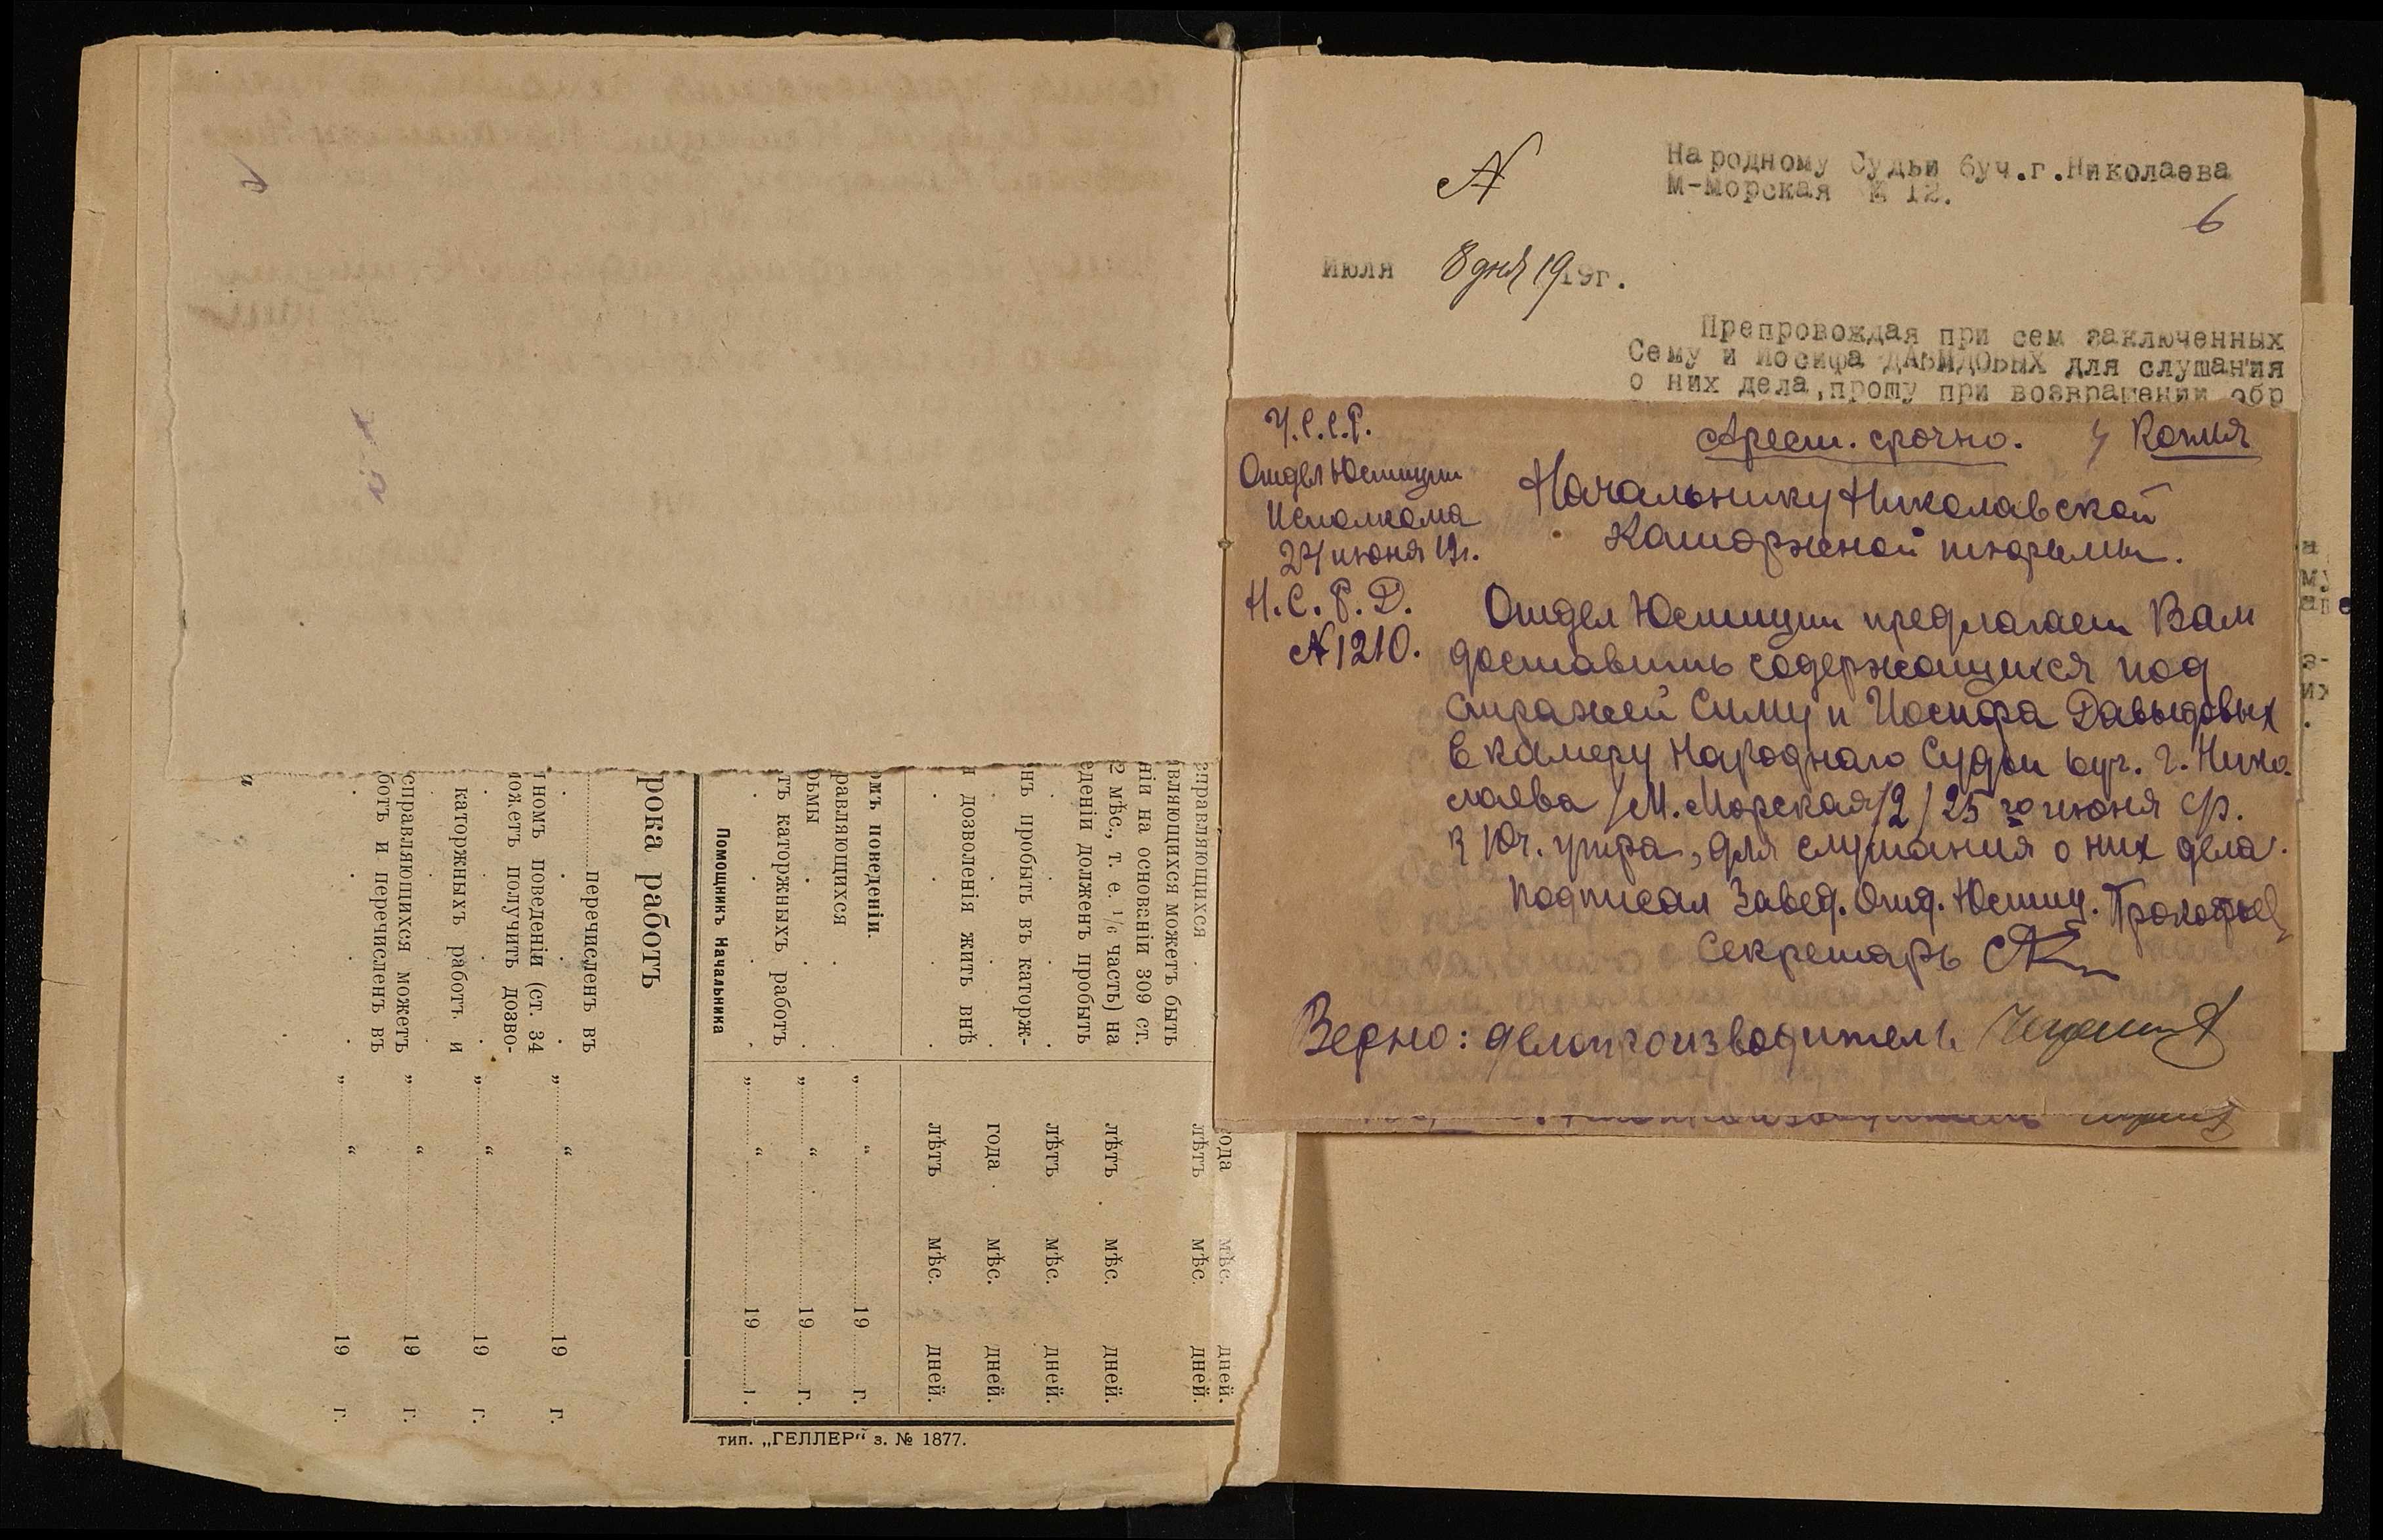 Народному Судьи 6уч.г.Николаева
М-Морская № 12.
6
Июля 8 дня 1919г.
Препровождая при сем заключенных
Сему и Иосифа ДАВИДОВЫХ для слушания
о них дела,прошу при возвращении обр
У.С.С.Р.
Арест. срочно.
Копия
Отдел Юстиции
Исполкома
24 июня 19г.
Н.С.Р.Д.
№ 1210.
Начальнику Николавской
Каторжной тюрьмы.
Отдел Юстиции предлагает Вам
доставить содержащихся под
стражей Симу и Иосифа Давыдовых
в камеру Народнаго Судьи 6уч. г. Нико-
лаева /М. Морская 12/ 25го июня с/г.
к 10ч. утра, для слушания о них дела.
Подписал Завед. Отд. Юстиц. Прокофьев
Секретарь
Верно: делопроизводитель
справляющихся
вляющихся можетъ быть
ніи на основаніи 309 ст.
2 мѣс., т. е. 1/6 часть) на
еденіи долженъ пробыть
нъ пробыть въ каторж-
дозволенія жить внѣ
года мѣс. дней.
лѣтъ мѣс. дней.
лѣтъ мѣс. дней.
лѣтъ мѣс. дней.
года мѣс. дней.
лѣтъ мѣс. дней.
омъ поведеніи.
равляющихся „ “ 19 г.
рьмы
тъ каторжныхъ работъ „ “ 19 г.
Помощникъ Начальника „ “ 19 г.
рока работъ
перечисленъ въ
номъ поведеніи (ст. 34 „ “ 19 г.
ожетъ получить дозво-
каторжныхъ работъ и „ “ 19 г.
справляющихся можетъ „ “ 19 г.
ботъ и перечисленъ въ
„ “ 19 г.
тип. „ГЕЛЛЕР“ з. № 1877.